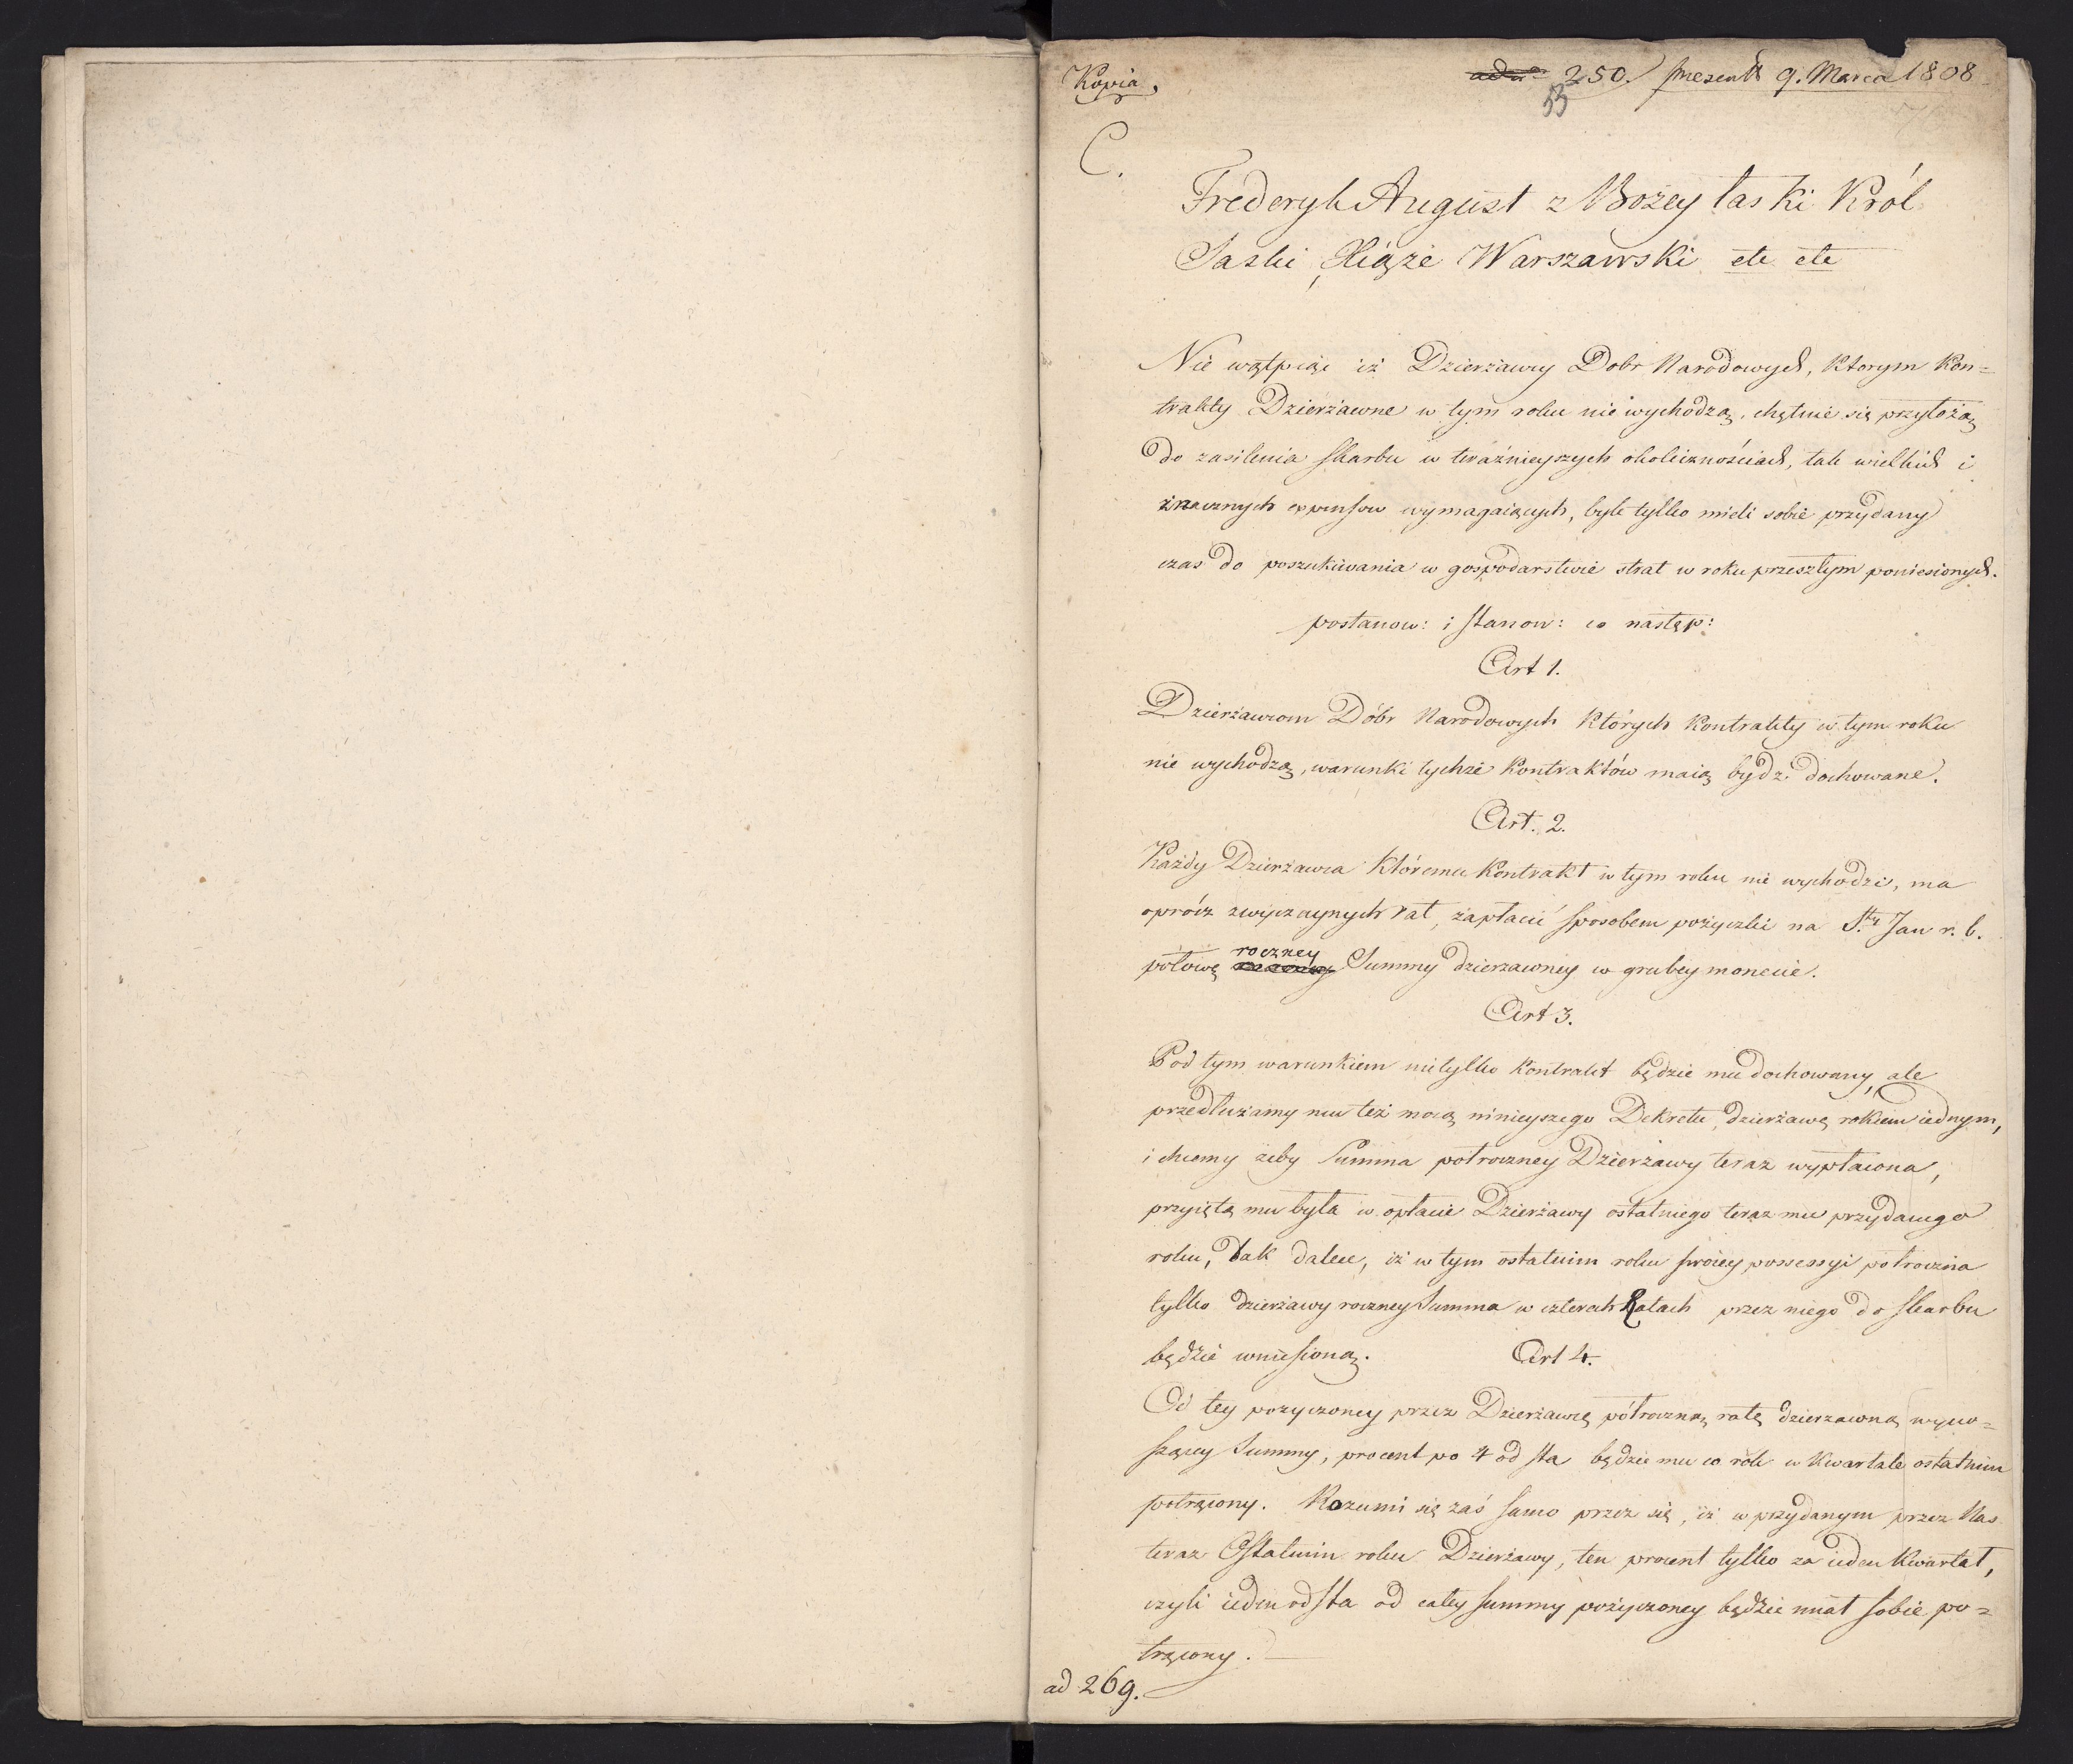 Kopia.
250. presents 9. Marca 1808
53
C.
Frederyk August z Bożey łaski Król
Saski, Xiąże Warszawski etc etc
Nie wątpiąc iż Dzierżawcy Dobr Narodowych, ktorym Kon=
trakty Dzierżawne w tym roku nie wychodzą, chętnie się przyłożą
do zasilenia skarbu w teraźnieyszych okolicznościach, tak wielkich i
znacznych expensow wymagaiących, byle tylko mieli sobie przydany
czas do poszukiwania w gospodarstwie strat w roku przeszłym poniesionych.
postanow: i stanow: co następ:
Art 1.
Dzierżawcom Dóbr Narodowych których Kontrakty w tym roku
nie wychodzą, warunki tychże Kontraktów maią bydź dochowane.
Art. 2.
Każdy Dzierżawca któremu Kontrakt w tym roku nie wychodzi, ma
oprócz zwyczaynych rat, zapłacić sposobem pożyczki na S.ty Jan r. b.
połowę roczney Summy dzierzawney w grubey monecie.
Art 3.
Pod tym warunkiem nietylko Kontrakt będzie mu dochowany, ale
przedłużamy mu też mocą ninieyszego Dekretu, dzierżawę rokiem iednym,
i chcemy żeby Summa połroczney Dzierżawy teraz wypłacona,
przyiętą mu była w opłacie Dzierżawy ostatniego teraz mu przydanego
roku, tak dalece, iż w tym ostatnim roku swoiey possessyi połroczna
tylko dzierżawy roczney Summa w czterech Ratach przez niego do skarbu
będzie wniesioną. Art 4.
Od tey pożyczoney przez Dzierżawcę półroczną ratę dzierzawną wyno=
szącey Summy, procent po 4 od sta będzie mu co rok w Kwartale ostatnim
potrącony. Rozumi się zaś samo przez się, iż w przydanym przez Nas
teraz Ostatnim roku Dzierżawy, ten procent tylko za ieden Kwartał,
czyli ieden od sta od całey summy pożyczoney będzie miał sobie po=
trącony.
ad 269.